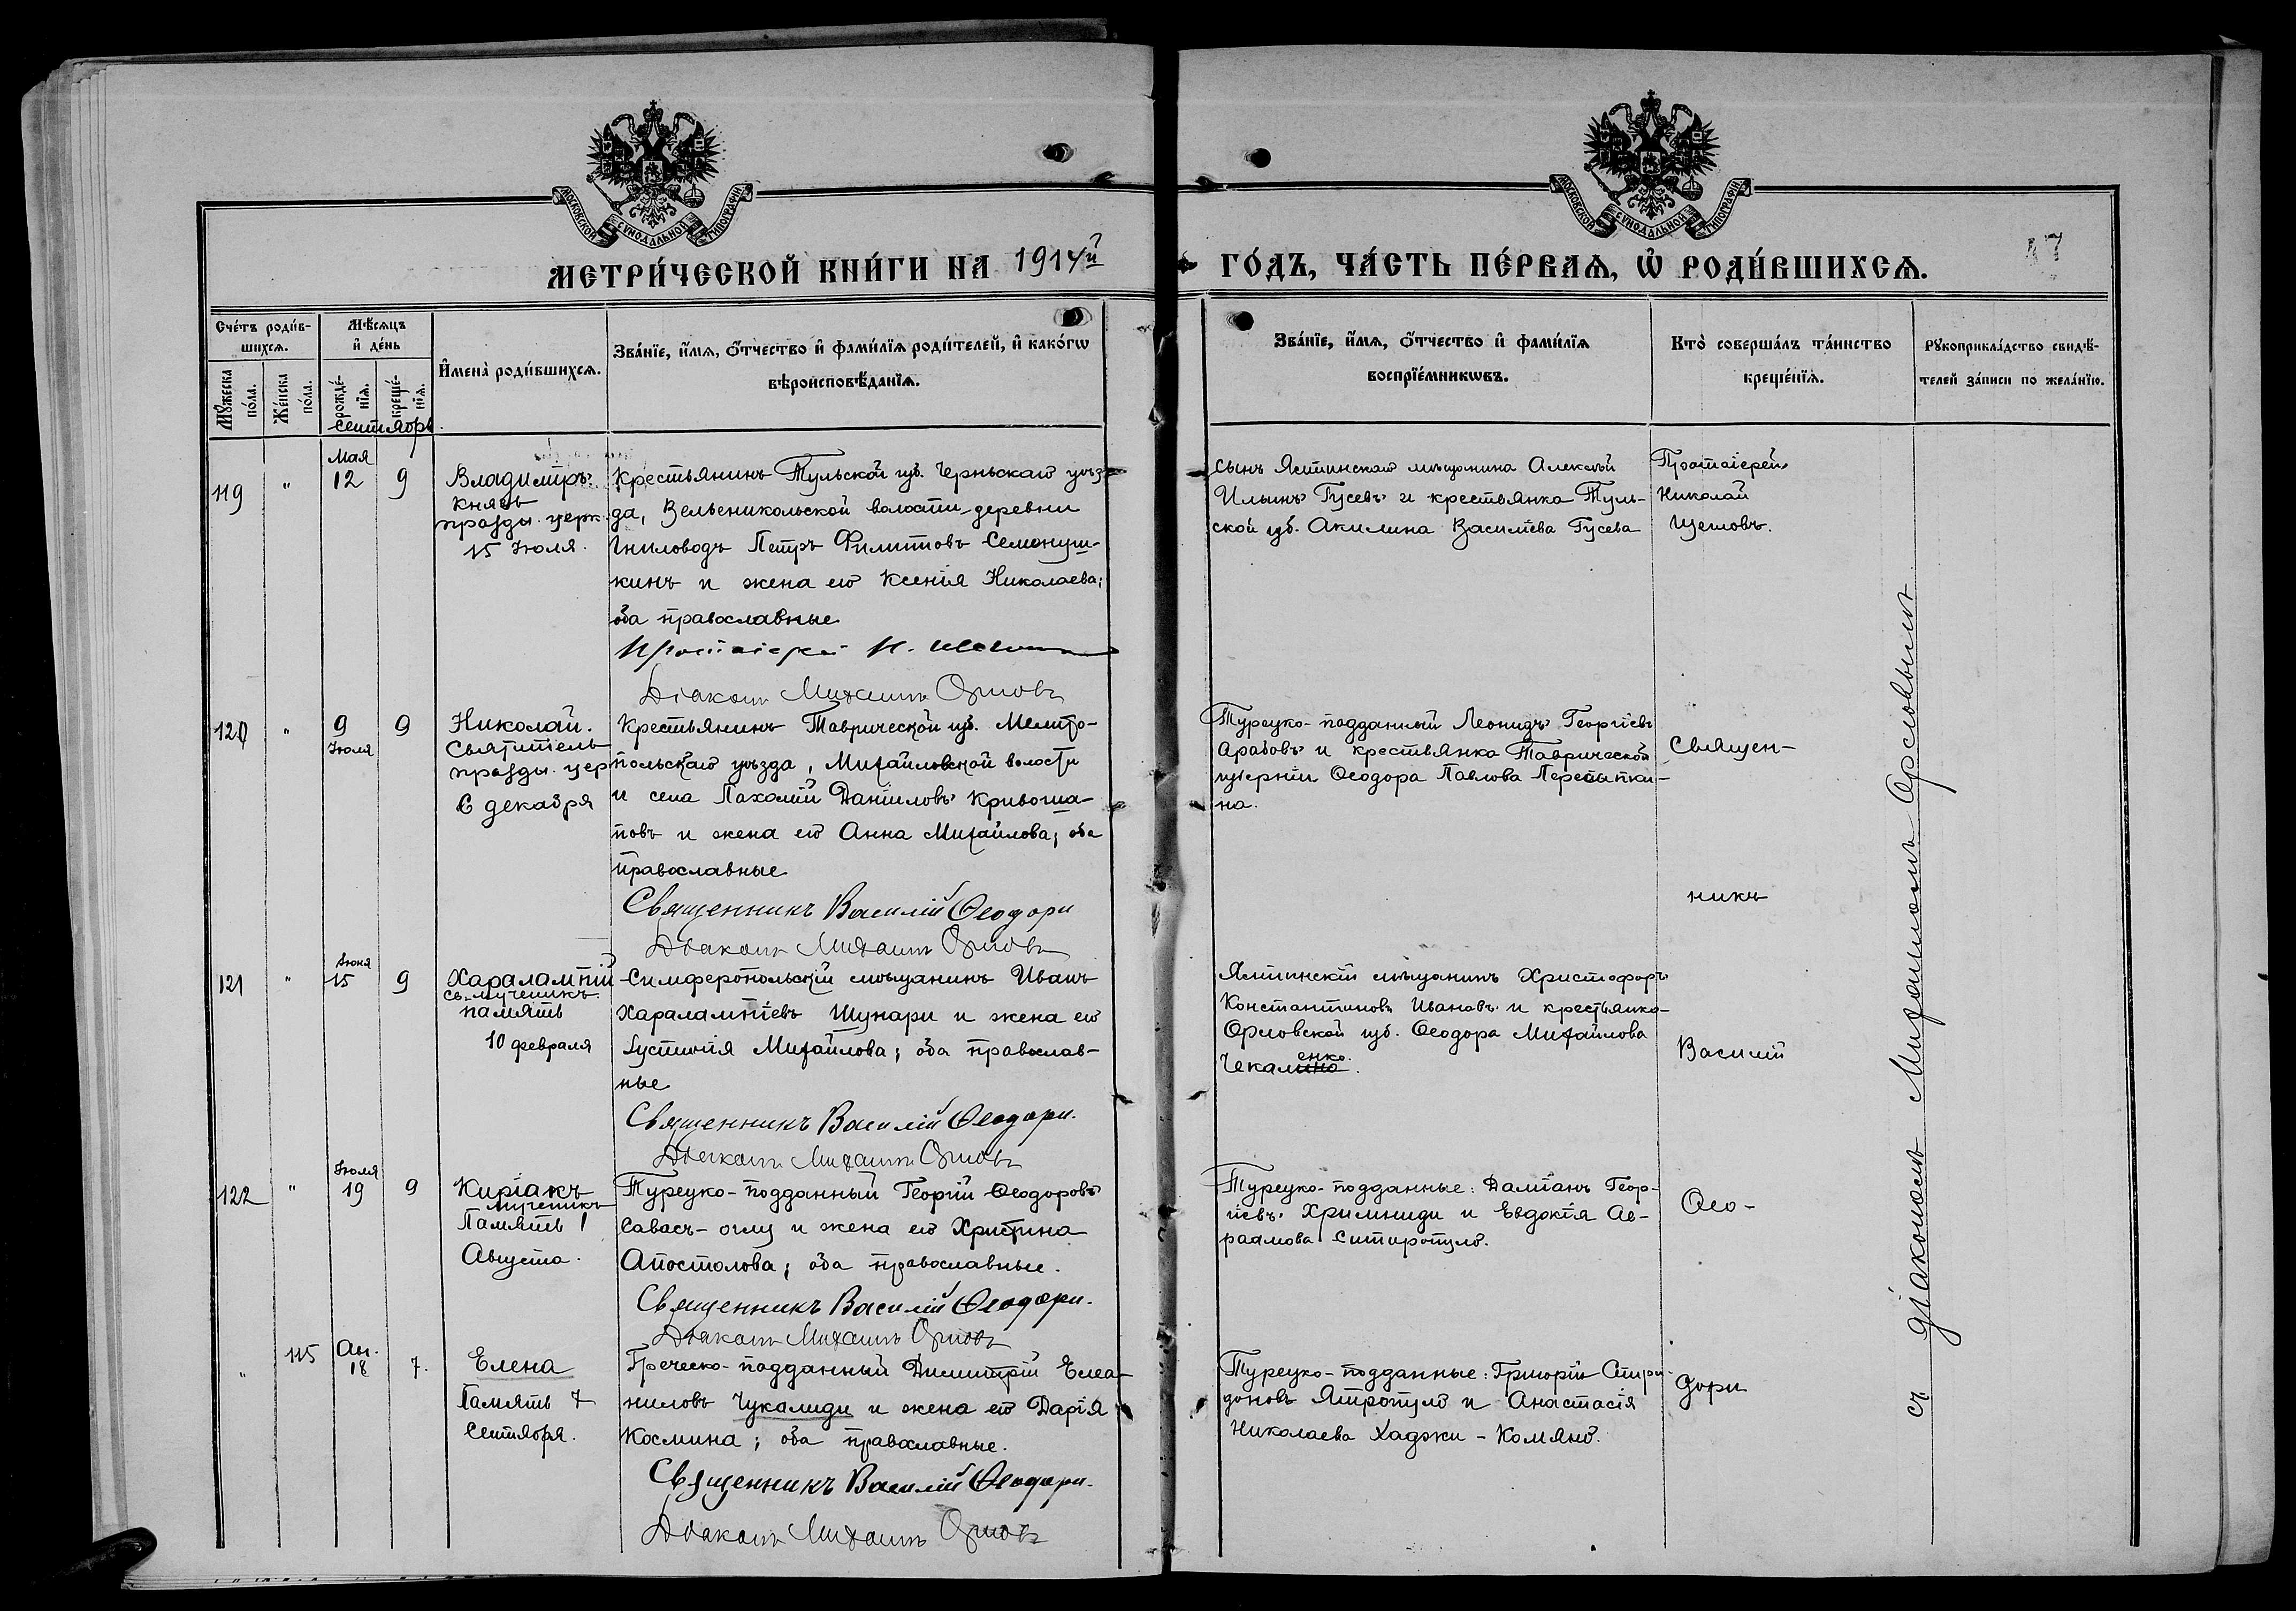 МОСКОВСКОЙ СѴНОДАЛЬНОЙ ТИПОГРАФІИ
МОСКОВСКОЙ СѴНОДАЛЬНОЙ ТИПОГРАФІИ
МЕТРИ́ЧЕСКОЙ КНИ́ГИ НА 1914й
ГО́ДЪ, ЧА́СТЬ ПЕ́РВАѦ, Ѡ҆ РОДИ́ВШИХСѦ.
47
Сче́тъ роди́в-
шихсѧ.
Мꙋ́жеска по́ла.
Же́нска по́ла.
Мѣ́сѧцъ
и҆ де́нь
рожде́-
нїѧ.
креще́-
нїѧ.
Сентябрь.
И҆мена̀ роди́вшихсѧ.
Зва́нїе, и҆́мѧ, ѻ҆́тчество и҆ фами́лїѧ роди́телей, и҆ како́гѡ
вѣроисповѣ́данїѧ.
Зва́нїе, и҆́мѧ, ѻ҆́тчество и҆ фами́лїѧ
воспрїе́мникѡвъ.
Кто̀ соверша́лъ та́инство
креще́нїѧ.
Рꙋкоприкла́дство свидѣ́-
телей за́писи по жела́нїю.
119
"
Мая
12
9
Владиміръ
Князь
праздн. церк.
15 Іюля.
Крестьянинъ Тульской губ. Черньскаго уѣз-
да, Вельеникольской волости деревни
Гниловодъ Петръ Филипповъ Семонуш-
кинъ и жена его Ксенія Николаева;
оба православные
Протоіерей Н.
Діаконъ Михаилъ Орловъ
сынъ Ялтинскаго мѣщанина Алексѣй
Ильинъ Гусевъ и крестьянка Туль-
ской губ. Акилина Васильева Гусева
Протоіерей
Николай
120
"
9
Іюля
9
Николай.
Святитель
праздн. цер
6 декабря
Крестьянинъ Таврической губ. Мелито-
польскаго уѣзда, Михайловской волости
и села Пахомій Даніиловъ Кривоша-
повъ и жена его Анна Михайлова; оба
православные
Священникъ Василій Ѳеодори
Діаконъ Михаилъ Орловъ
Турецко-подданный Леонидъ Георгіевъ
Арабовъ и крестьянка Таврической
губерніи Ѳеодора Павлова Перепытки-
на.
Священ-
никъ
121
"
Іюня
15
9
Харалампій
св. мученикъ
память
10 февраля
Симферопольскій мѣщанинъ Иванъ
Харалампіевъ Шунари и жена его
Іустинія Михайлова; оба православ-
ные
Священникъ Василій Ѳеодори.
Діаконъ Михаилъ Орловъ
Ялтинскій мѣщанинъ Христофоръ
Константиновъ Ивановъ и крестьянка
Орловской губ. Ѳеодора Михайлова
енко.
Чекалина.
Василій
122
"
Іюля
19
9
Киріакъ
мученикъ
Память 1
Августа.
Турецко-подданный Георгій Ѳеодоровъ
Савасъ-оглу и жена его Христина
Апостолова; оба православные.
Священникъ Василій Ѳеодори.
Діаконъ Михаилъ Орловъ
Турецко-подданные: Даміанъ Геор-
гіевъ Хримниди и Евдокія Ав-
раамова Спиропуло.
Ѳео-
"
115
Ап.
18
7.
Елена
Память 7
Сентября.
Греческо-подданный Димитрій Елеа-
ниловъ Чукалиди и жена его Дарія
Космина; оба православные.
Священникъ Василій Ѳеодори.
Діаконъ Михаилъ Орловъ
Турецко-подданные: Григорій Спири-
доновъ Ятропуло и Анастасія
Николаева Хаджи-Комяно.
дори
съ діакономъ Михаиломъ Орловымъ